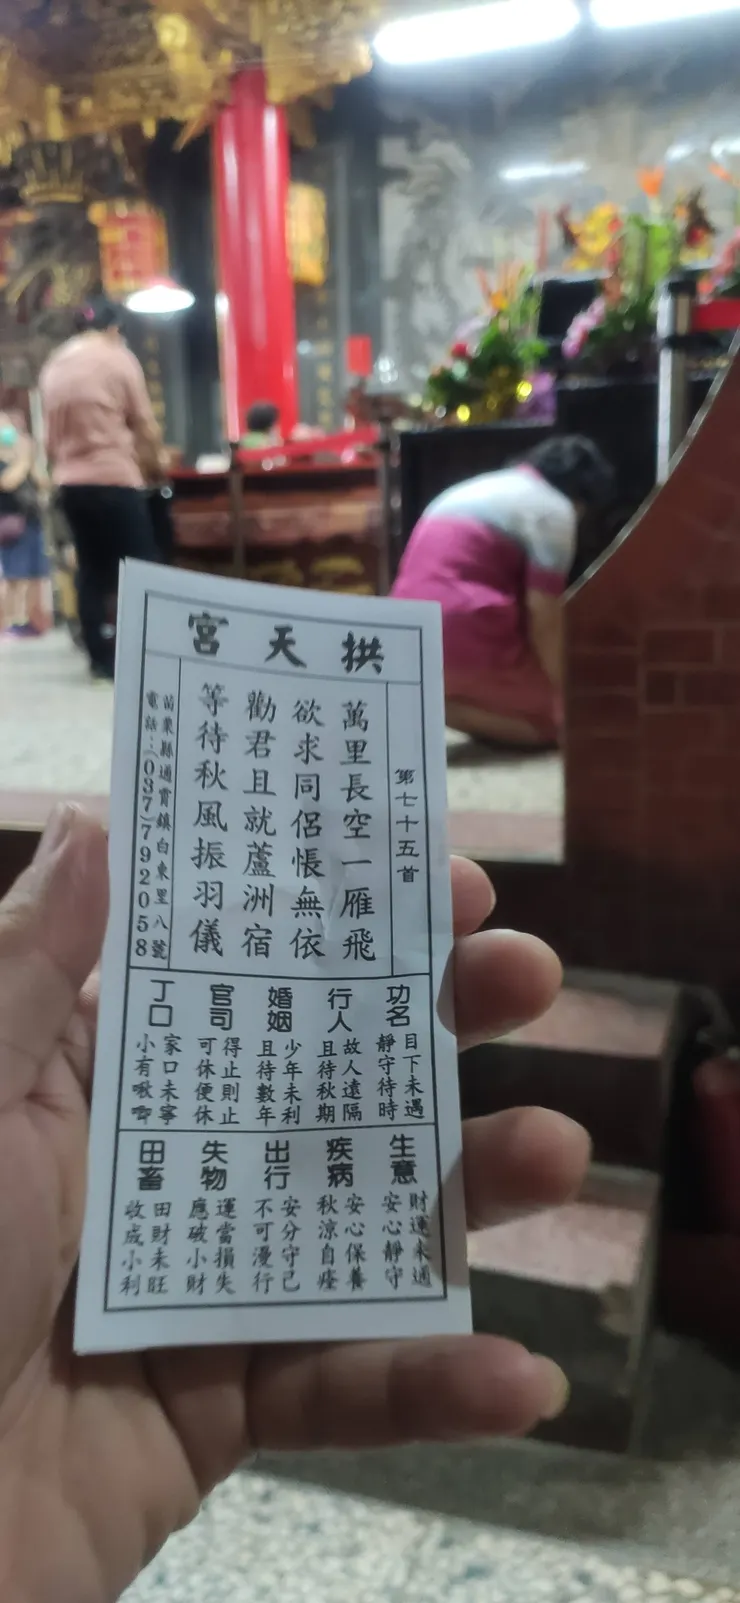 拱天宮
第七十五首
萬里長空一雁飛
欲求同侶悵無依
勸君且就蘆洲宿
等待秋風振羽儀
苗栗縣通霄鎮白東里八號
電話：(037)792058
功名
目下未遇
靜守待時
行人
故人遠隔
且待秋期
婚姻
少年未利
且待數年
官司
得止則止
可休便休
丁口
家口未寧
小有啾唧
生意
財運未通
安心靜守
疾病
安心保養
秋涼自痊
出行
安分守己
不可漫行
失物
運當損失
應破小財
田畜
田財未旺
收成小利